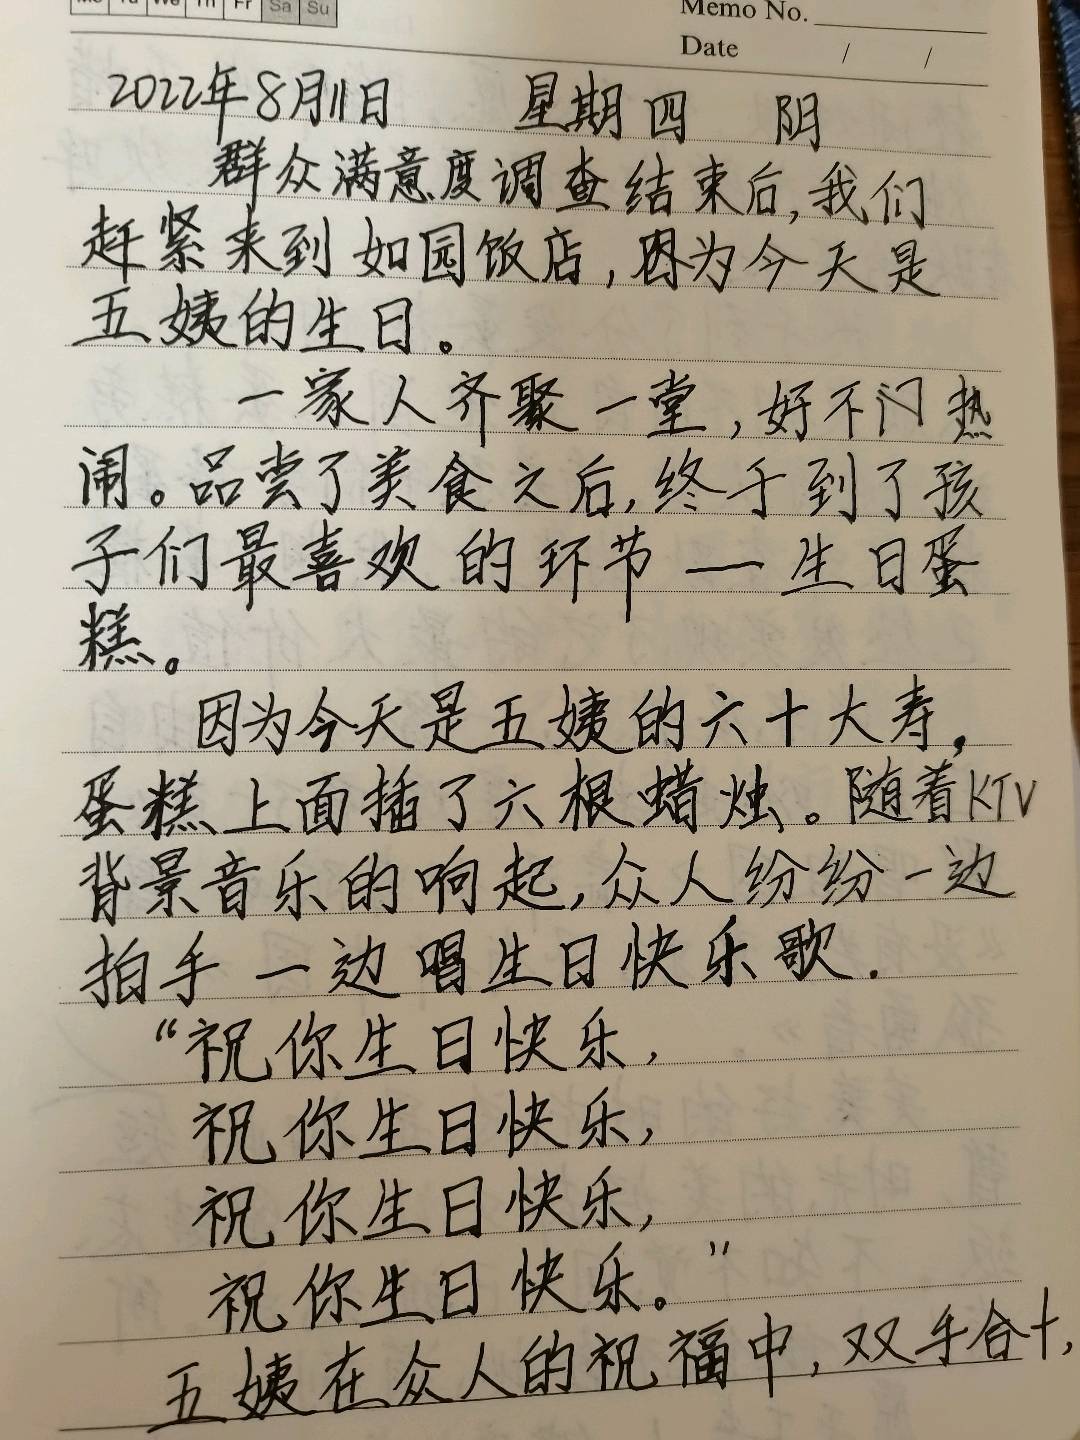 Mo Tu We Th Fr Sa Su
Memo No.
Date / /
2022年8月11日 星期四 阴
群众满意度调查结束后,我们
赶紧来到如园饭店,因为今天是
五姨的生日。
一家人齐聚一堂,好不闪热
闹。品尝了美食之后,终于到了孩
子们最喜欢的环节——生日蛋
糕。
因为今天是五姨的六十大寿,
蛋糕上面插了六根蜡烛。随着KTV
背景音乐的响起,众人纷纷一边
拍手一边唱生日快乐歌.
“祝你生日快乐,
祝你生日快乐,
祝你生日快乐,
祝你生日快乐。”
五姨在众人的祝福中,双手合十,